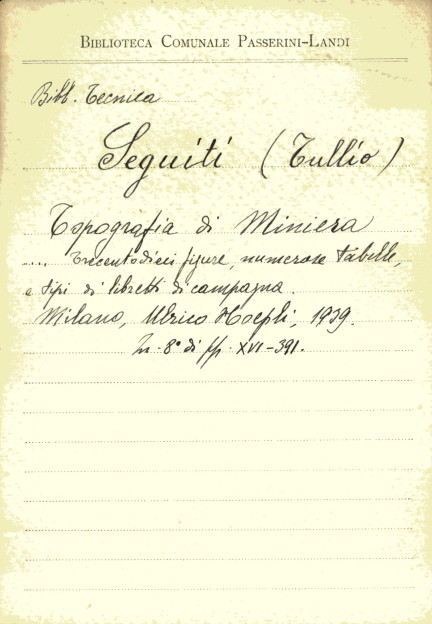 BIBLIOTECA COMUNALE PASSERINI-LANDI
Bibl. Tecnica
Seguiti (Tullio)
Topografia di Miniera
.... Trecentodieci figure, numerose tabelle,
e tipi di libretti di campagna.
Milano, Ulrico Hoepli, 1939.
In 8° di pp. XVI-391.